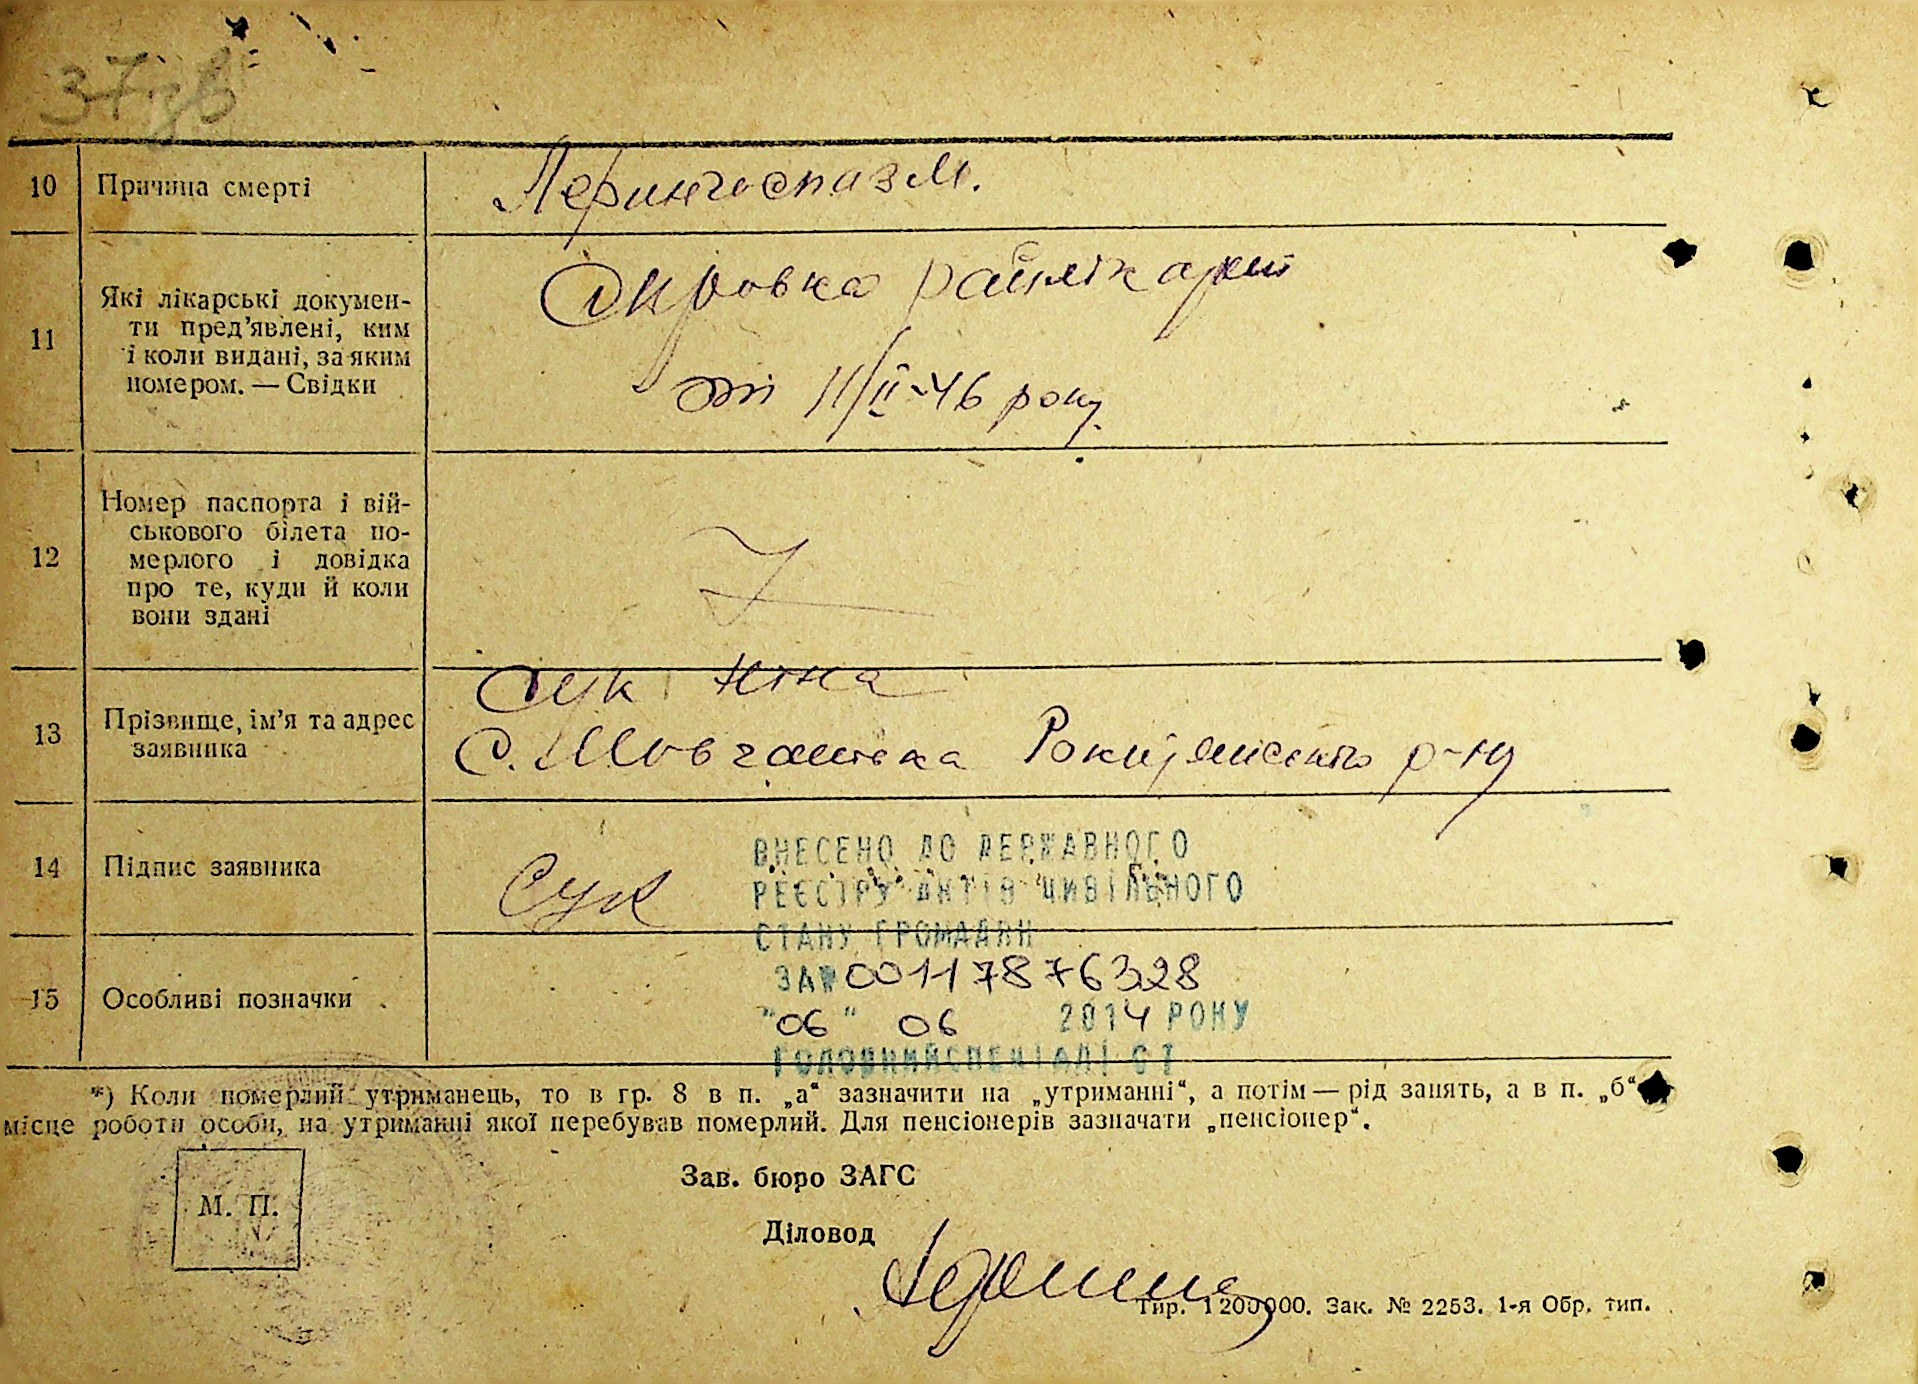 37зв
10 Причина смерті Лерингоспазм.
11 Які лікарські докумен-
ти пред’явлені, ким
і коли видані, за яким
номером. — Свідки
Справка райлікарні
від 11/ІІ-46 року.
12 Номер паспорта і вій-
ськового білета по-
мерлого і довідка
про те, куди й коли
вони здані
Z
13 Прізвище, ім’я та адрес
заявника
Сук Ніна
с. Шовгтнівка Рокитянського р-ну
14 Підпис заявника Сук
ВНЕСЕНО ДО ДЕРЖАВНОГО
РЕЄСТРУ АКТІВ ЦИВІЛЬНОГО
СТАНУ ГРОМАДЯН
ЗА№ 00117876328
15 Особливі позначки
"06" 06 2014 РОКУ
ГОЛОВНИЙ СПЕЦІАЛІСТ
*) Коли померлий утриманець, то в гр. 8 в п. „а“ зазначити на „утриманні“, а потім — рід занять, а в п. „б“
місце роботи особи, на утриманні якої перебував померлий. Для пенсіонерів зазначати „пенсіонер“.
М. П.
Зав. бюро ЗАГС
Діловод
Тир. 1200000. Зак. № 2253. 1-я Обр. тип.